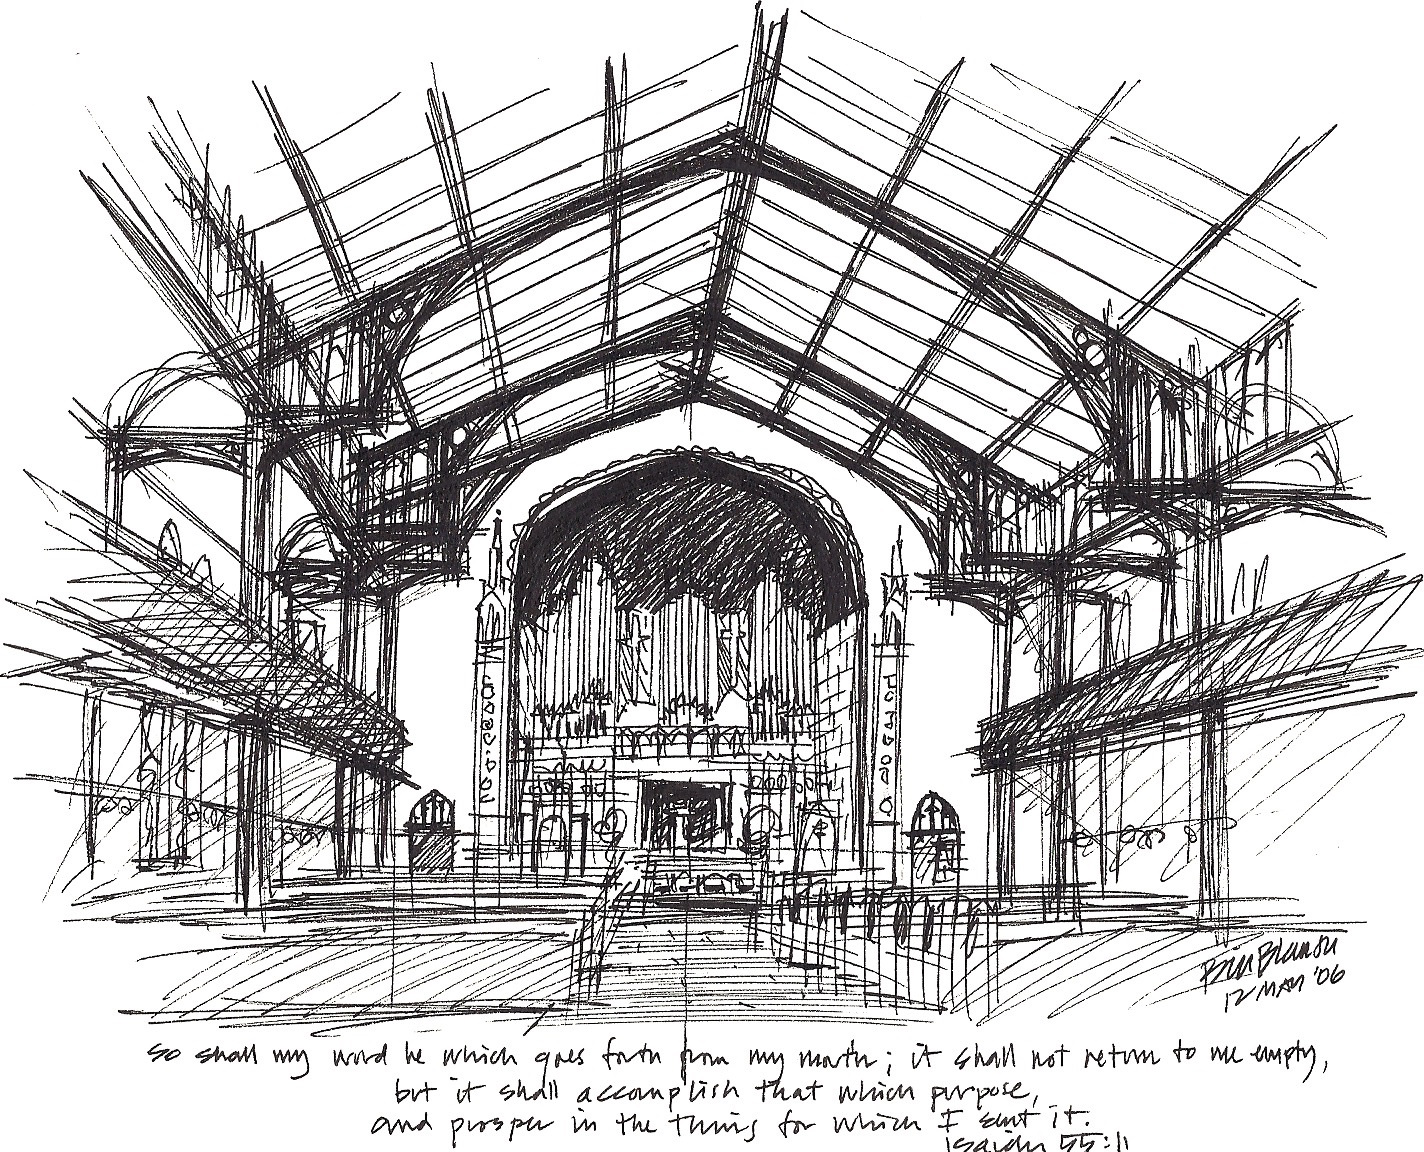 Bill Blanski
12 MAY '06
so shall my word be which goes forth from my mouth; it shall not return to me empty,
but it shall accomplish that which purpose,
and prosper in the thing for which I sent it.
Isaiah 55:11